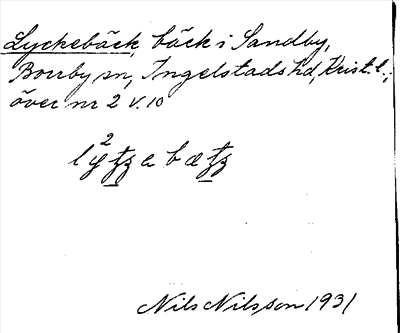 Lyckebäck, bäck i Sandby,
Borrby sn, Ingelstads hd, Krist. l.;
över nr 2 v. 10
Nils Nilsson 1931